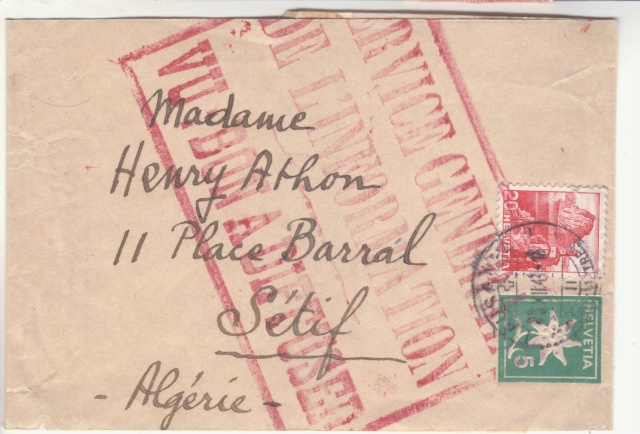 Madame
Henry Athon
11 Place Barral
Sétif
- Algérie -
SERVICE GENERAL
DE L'INFORMATION
VU BON A DISPOSER
20 HELVETIA
HELVETIA
5